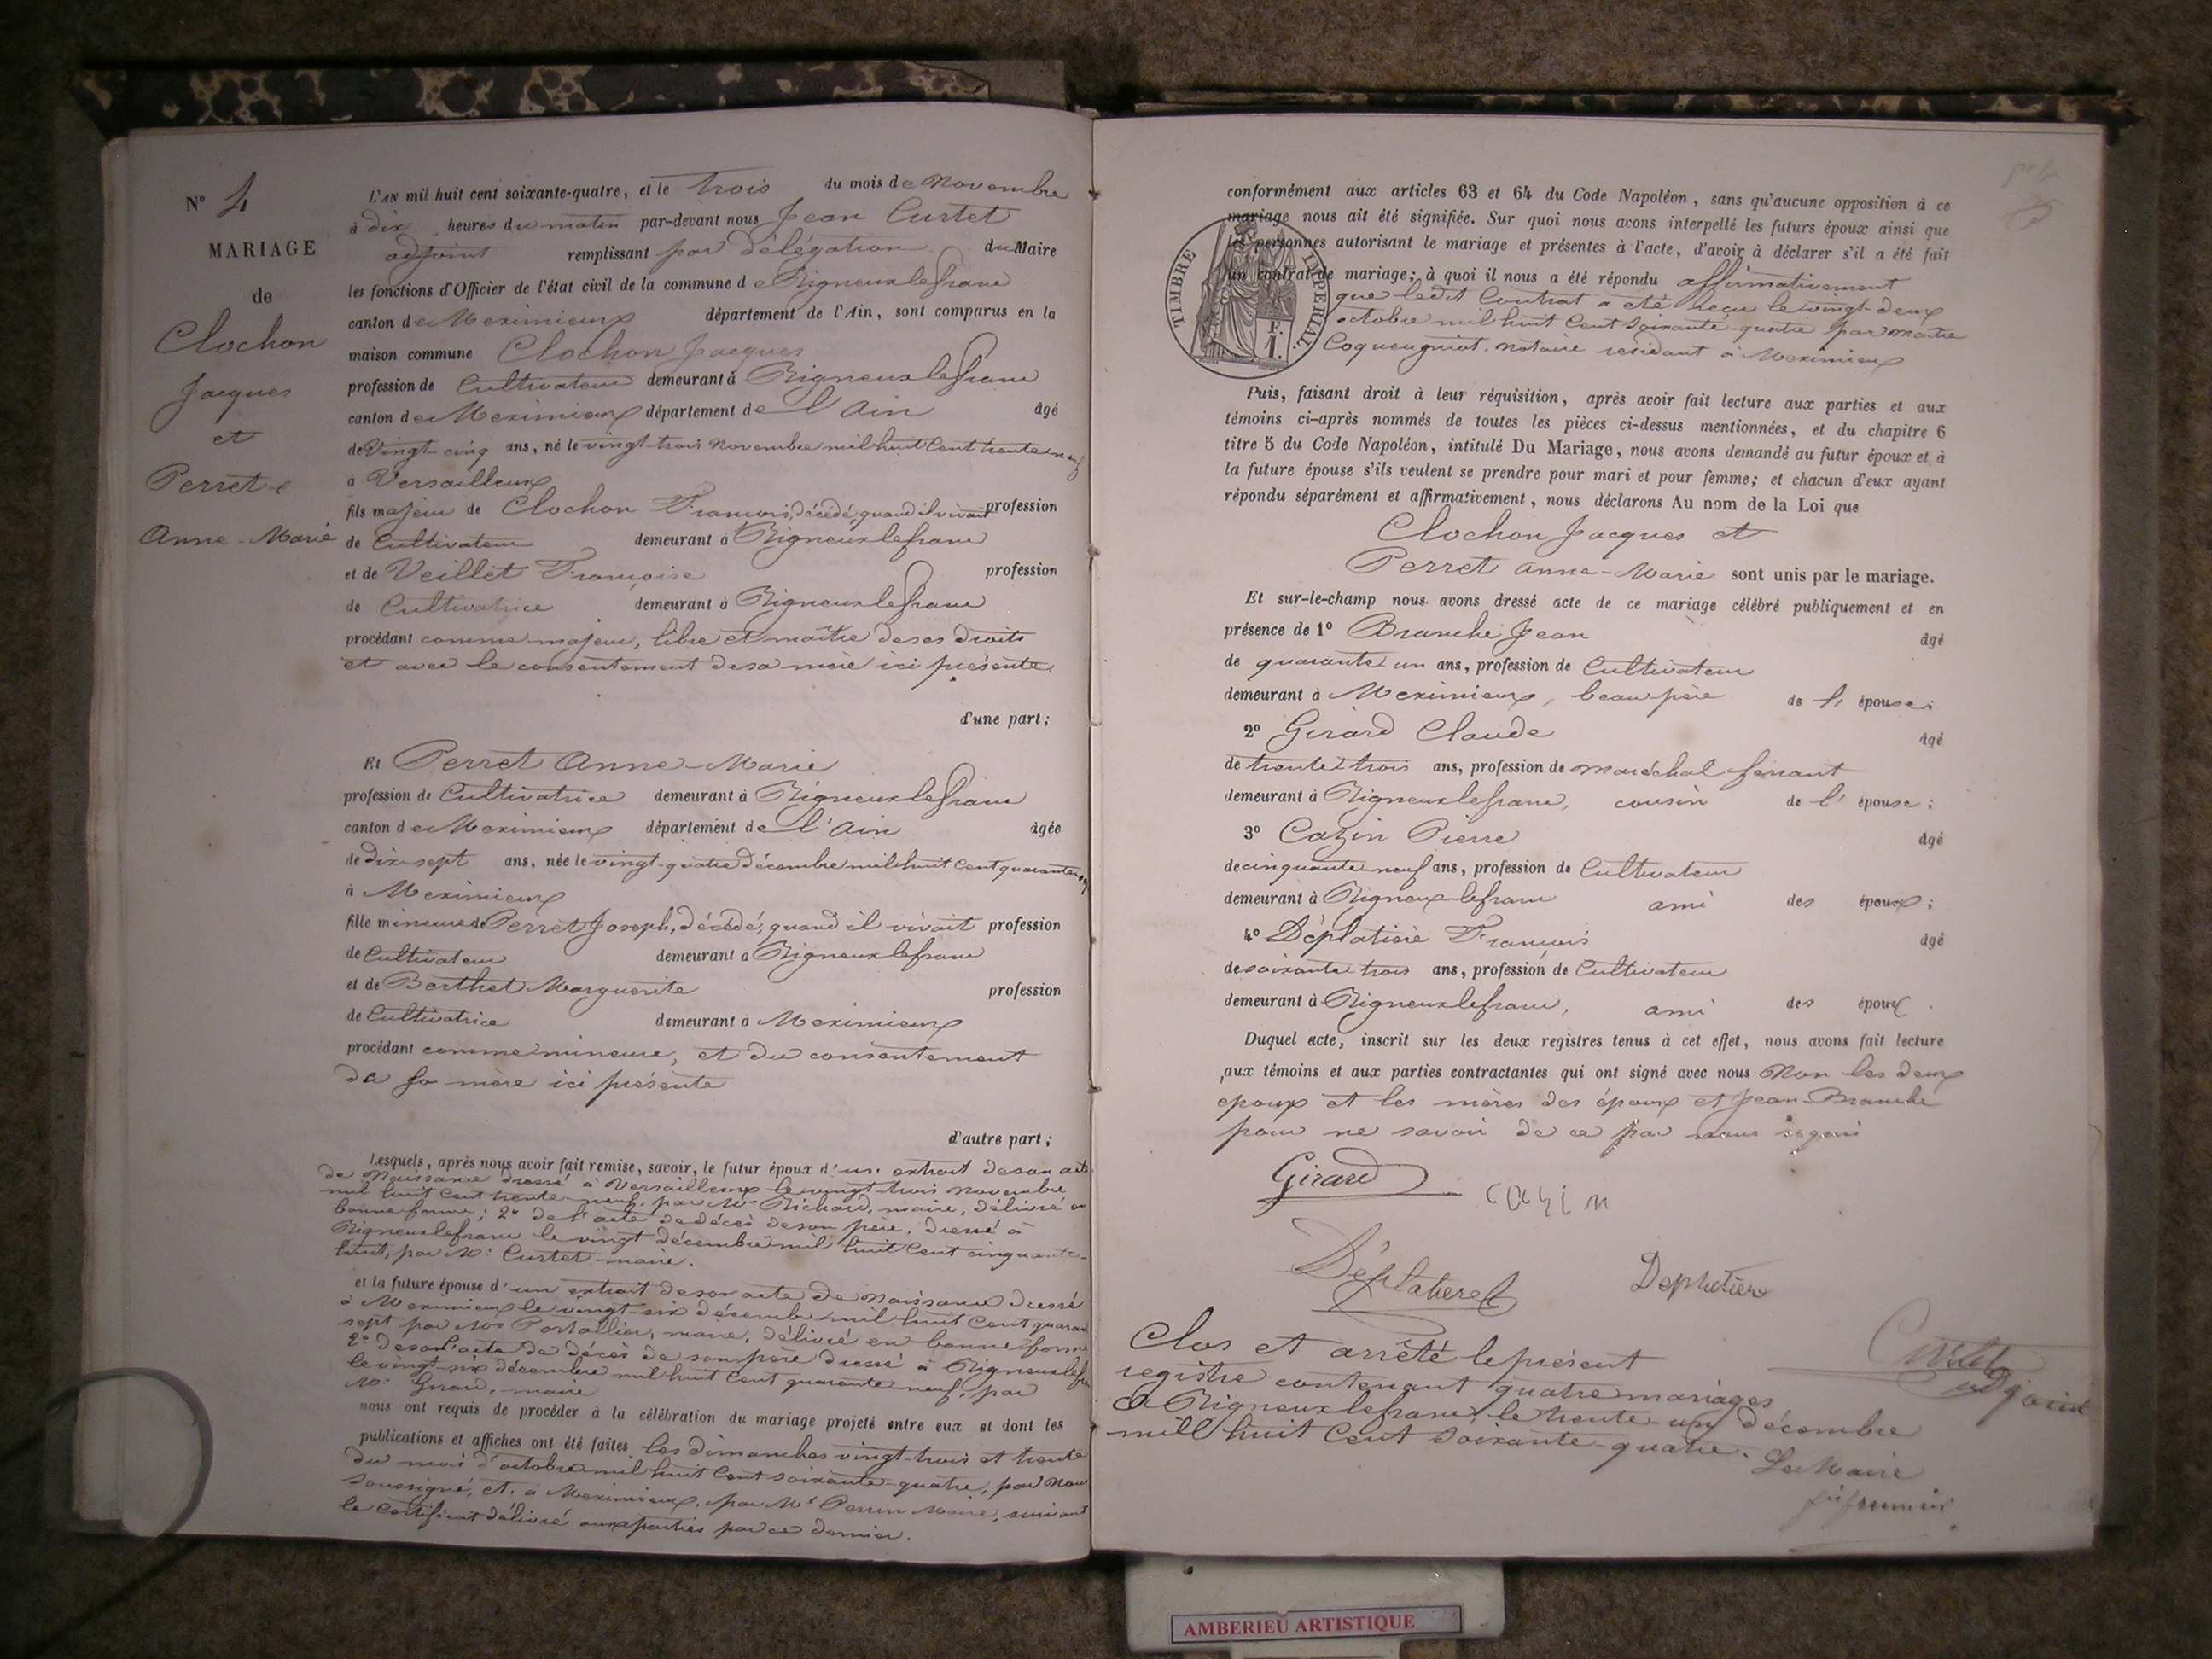 N° 4
MARIAGE
de
Clochon
Jacques
et
Perret
Anne-Marie
L'AN mil huit cent soixante-quatre, et le trois du mois de Novembre
à dix heures du matin par-devant nous Jean Curtet
adjoint remplissant par délégation du Maire
les fonctions d'Officier de l'état civil de la commune de Rigneux le franc
canton de Meximieux département de l'Ain, sont comparus en la
maison commune Clochon Jacques
profession de Cultivateur demeurant à Rigneux le franc
canton de Meximieux département de l'Ain âgé
de Vingt-cinq ans, né le vingt-trois Novembre mil huit cent trente neuf
à Versailleux
fils majeur de Clochon François, décédé, quand il vivait profession
de Cultivateur demeurant à Rigneux le franc
et de Veillet Françoise profession
de Cultivatrice demeurant à Rigneux le franc
procédant comme majeur, libre et maître de ses droits
et avec le consentement de sa mère ici présente.
d'une part;
Et Perret Anne-Marie
profession de Cultivatrice demeurant à Rigneux le franc
canton de Meximieux département de l'Ain âgée
de dix-sept ans, née le vingt-quatre décembre mil huit cent quarante
à Meximieux
fille mineure de Perret Joseph, décédé, quand il vivait profession
de Cultivateur demeurant à Rigneux le franc
et de Berthet Marguerite profession
de Cultivatrice demeurant à Meximieux
procédant comme mineure, et du consentement
de sa mère ici présente
d'autre part;
Lesquels, après nous avoir fait remise, savoir, le futur époux d'un extrait de son acte
de Naissance dressé à Versailleux le vingt-trois novembre
mil huit cent trente neuf, par Mr Richard, maire, délivré en
bonne forme; 2° de l'acte de décès de son père, dressé à
Rigneux le franc le vingt décembre mil huit cent cinquante-
huit, par Mr Curtet maire.
et la future épouse d'un extrait de son acte de Naissance dressé
à Meximieux le vingt-six décembre mil huit cent quaran
sept par Mr Portallier, maire, délivré en bonne forme
2° de l'acte de décès de son père dressé à Rigneux le fr
le vingt-six décembre mil huit cent quarante neuf, par
Mr Girard, maire
nous ont requis de procéder à la célébration du mariage projeté entre eux et dont les
publications et affiches ont été faites les dimanches vingt-trois et trente
du mois d'octobre mil huit cent soixante-quatre, par nous
soussigné, et à Meximieux, par Mr Perrin Maire, suivant
le certificat délivré aux parties par ce dernier.
conformément aux articles 63 et 64 du Code Napoléon, sans qu'aucune opposition à ce
mariage nous ait été signifiée. Sur quoi nous avons interpellé les futurs époux ainsi que
les personnes autorisant le mariage et présentes à l'acte, d'avoir à déclarer s'il a été fait
un contrat de mariage; à quoi il nous a été répondu affirmativement
que ledit Contrat a été reçu le vingt-deux
octobre mil huit cent soixante-quatre par maître
Coqueugniot, notaire résidant à Meximieux
TIMBRE IMPERIAL
F.
1.
Puis, faisant droit à leur réquisition, après avoir fait lecture aux parties et aux
témoins ci-après nommés de toutes les pièces ci-dessus mentionnées, et du chapitre 6
titre 5 du Code Napoléon, intitulé Du Mariage, nous avons demandé au futur époux et à
la future épouse s'ils veulent se prendre pour mari et pour femme; et chacun d'eux ayant
répondu séparément et affirmativement, nous déclarons Au nom de la Loi que
Clochon Jacques et
Perret Anne-Marie sont unis par le mariage.
Et sur-le-champ nous avons dressé acte de ce mariage célébré publiquement et en
présence de 1° Branche Jean âgé
de quarante un ans, profession de Cultivateur
demeurant à Meximieux, beau père de l' épouse;
2° Girard Claude âgé
de trente trois ans, profession de maréchal ferrant
demeurant à Rigneux le franc, cousin de l' épouse;
3° Cazin Pierre âgé
de cinquante neuf ans, profession de Cultivateur
demeurant à Rigneux le franc ami des époux;
4° Déplatière François âgé
de soixante trois ans, profession de Cultivateur
demeurant à Rigneux le franc, ami des époux.
Duquel acte, inscrit sur les deux registres tenus à cet effet, nous avons fait lecture
aux témoins et aux parties contractantes qui ont signé avec nous Non les deux
époux et les mères des époux et Jean Branche
pour ne savoir de ce par nous requis
Girard
cazin
Déplatière
Deplatière
Curtet
adjoint
Clos et arrêté le présent
registre contenant quatre mariages
à Rigneux le franc, le trente-un décembre
mill huit cent soixante-quatre.
Le Maire
AMBERIEU ARTISTIQUE